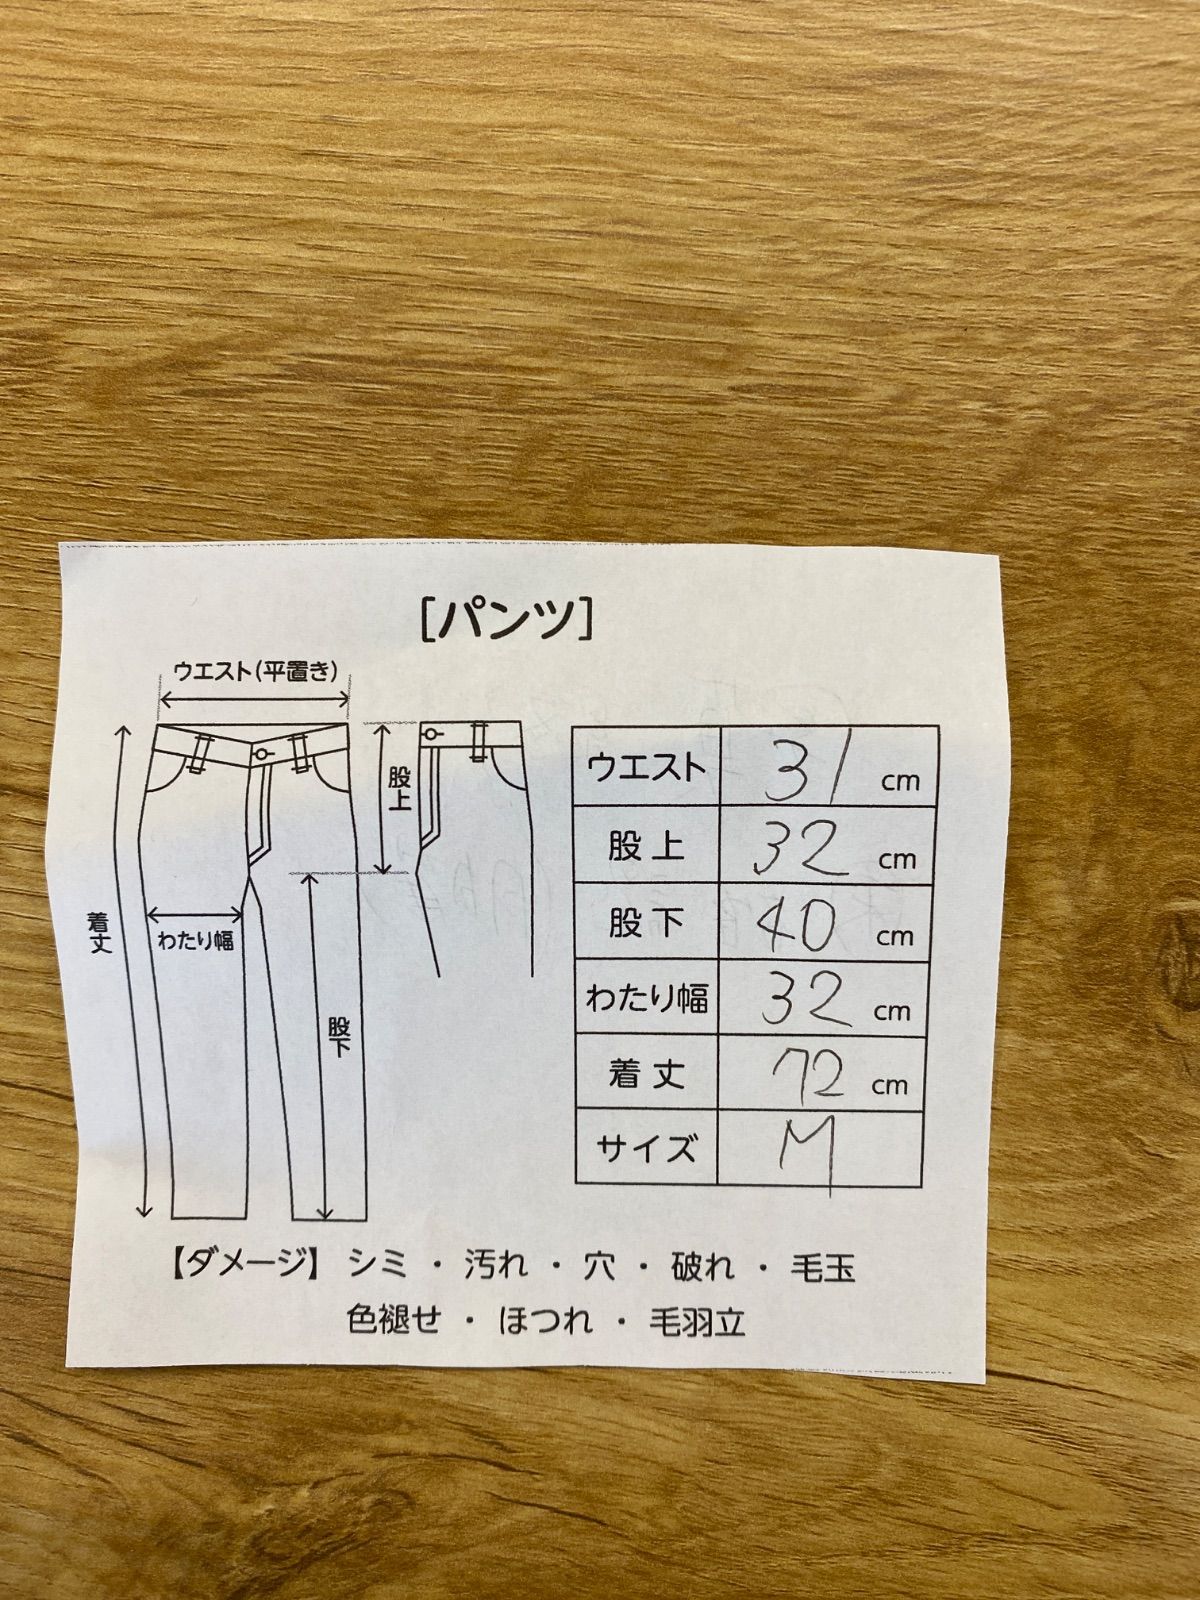 [パンツ]
ウエスト(平置き)
股上
着丈
わたり幅
股下
ウエスト 31 cm
股上 32 cm
股下 40 cm
わたり幅 32 cm
着丈 72 cm
サイズ M
【ダメージ】 シミ ・ 汚れ ・ 穴 ・ 破れ ・ 毛玉
色褪せ ・ ほつれ ・ 毛羽立